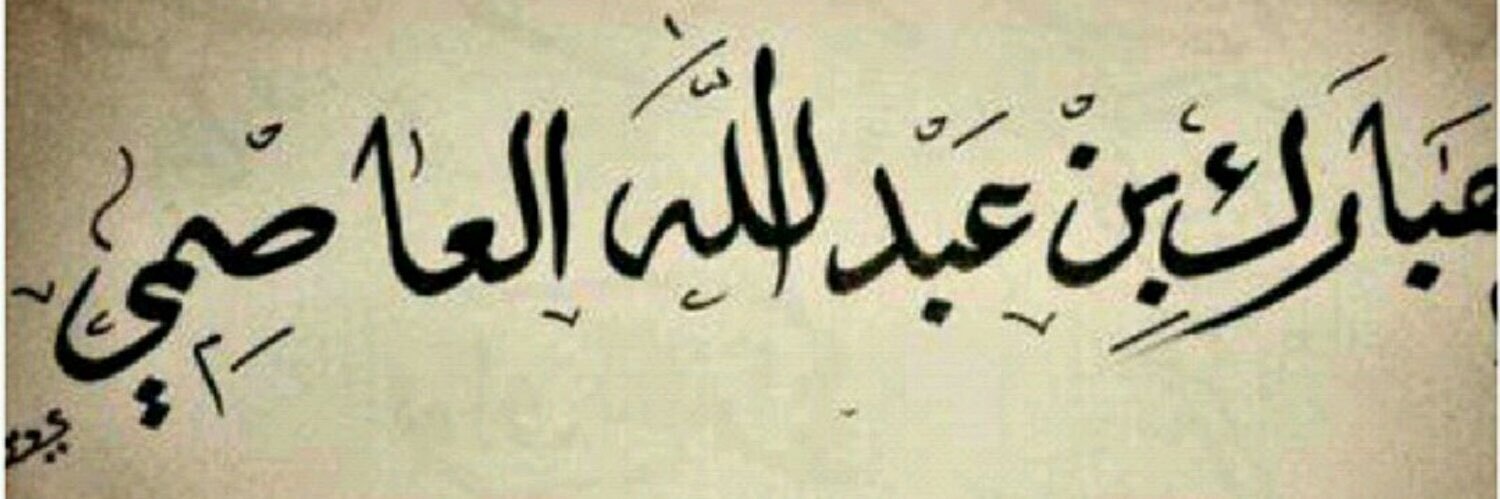 مُبَارَكْ بِنْ عَبْدِاللَّه العَاصِمِي